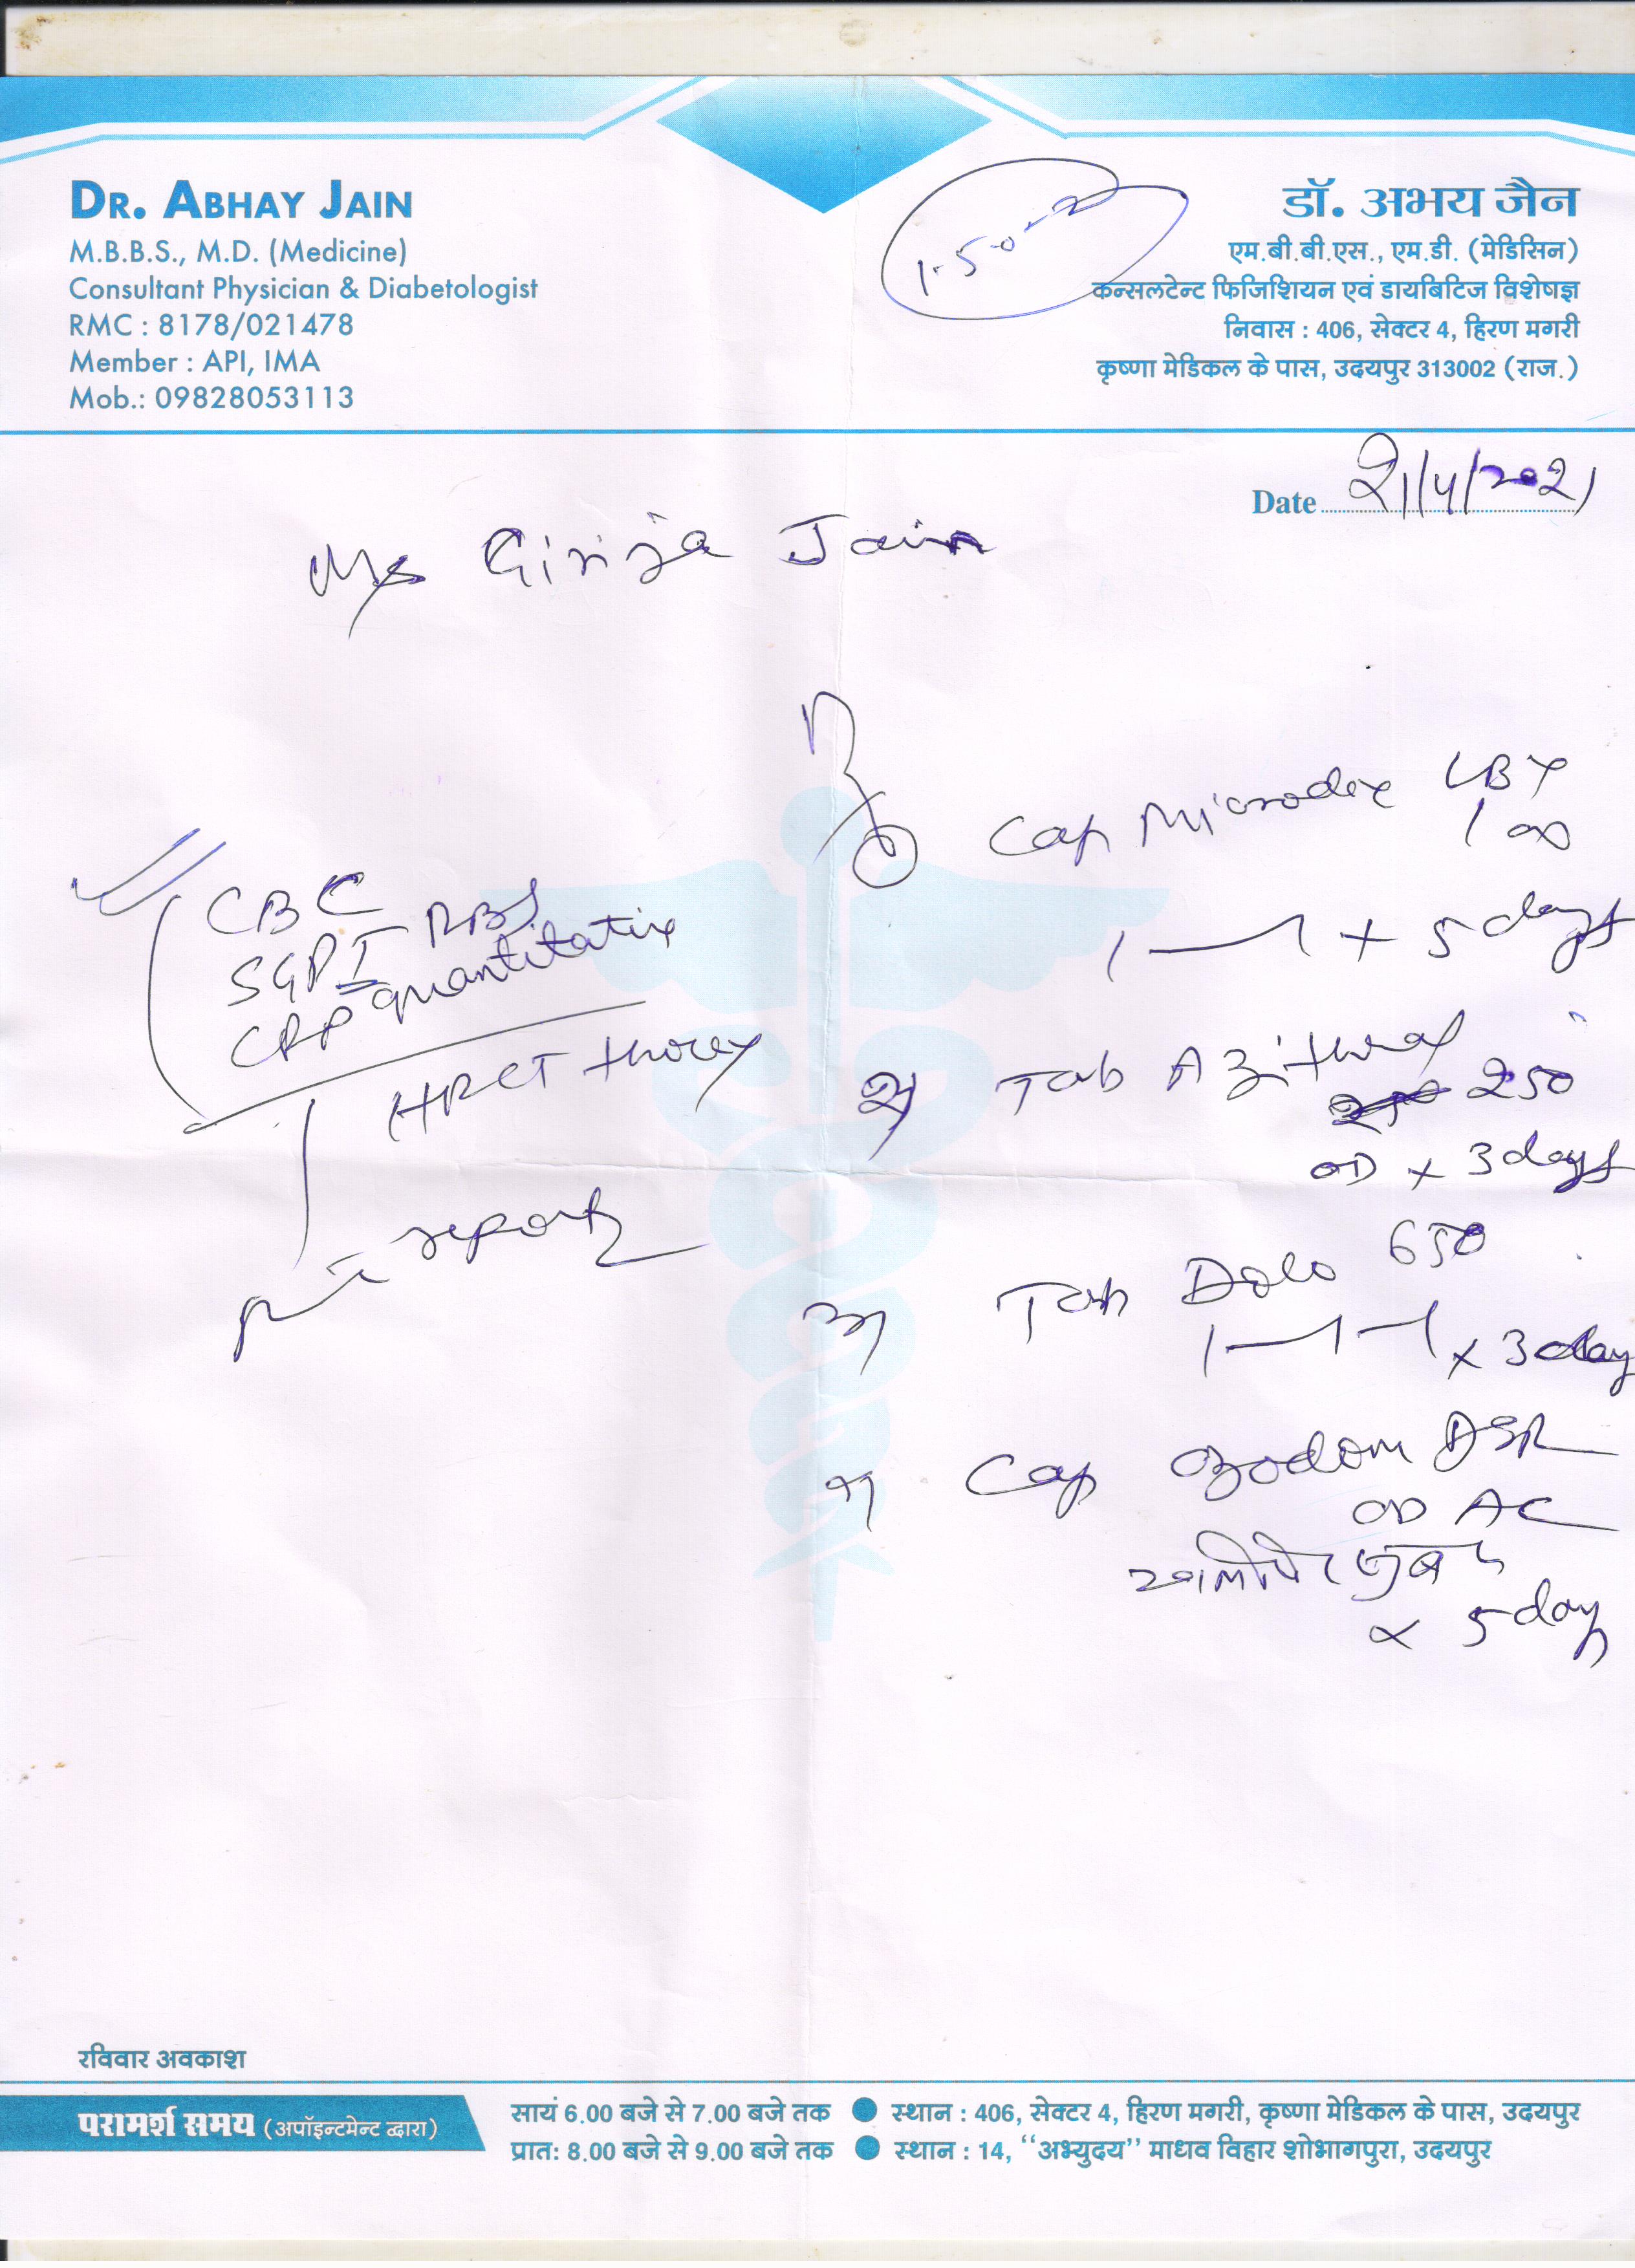 DR. ABHAY JAIN
M.B.B.S., M.D. (Medicine)
Consultant Physician & Diabetologist
RMC : 8178/021478
Member : API, IMA
Mob.: 09828053113
डॉ. अभय जैन
एम.बी.बी.एस., एम.डी. (मेडिसिन)
कन्सलटेन्ट फिजिशियन एवं डायबिटिज विशेषज्ञ
निवास : 406, सेक्टर 4, हिरण मगरी
कृष्णा मेडिकल के पास, उदयपुर 313002 (राज.)
Date 21/4/2021
Girija Jain
CBC
SGPT RBS
CRP quantitative
HRCT thorax
report
Cap Microdox LBX
1 - 1 x 5 days
Tab Azithral
250
OD x 3 days
Tab Dolo 650
1 - 1 - 1 x 3 day
Cap DSR
OD AC
x 5 day
रविवार अवकाश
परामर्श समय (अपॉइन्टमेन्ट द्वारा)
सायं 6.00 बजे से 7.00 बजे तक ● स्थान : 406, सेक्टर 4, हिरण मगरी, कृष्णा मेडिकल के पास, उदयपुर
प्रात: 8.00 बजे से 9.00 बजे तक ● स्थान : 14, ‘‘अभ्युदय’’ माधव विहार शोभागपुरा, उदयपुर